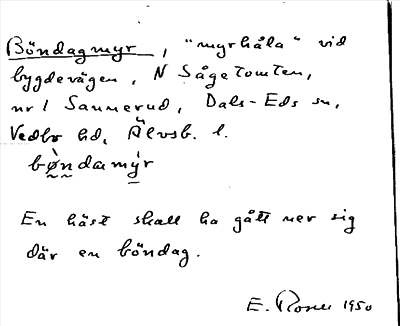 Böndagmyr, "myrhåla" vid
bygdevägen, N Sågetomten,
nr 1 Sannerud, Dals-Eds sn,
Vedbo hd, Älvsb. l.
bø̀ndamýr
En häst skall ha gått ner sig
där en böndag.
E. Rosell 1950